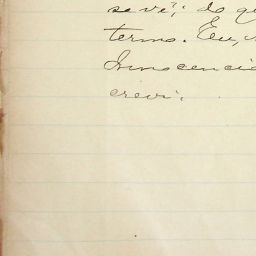 se vê; do q
termo. Eu,
Innocencio
crevi.